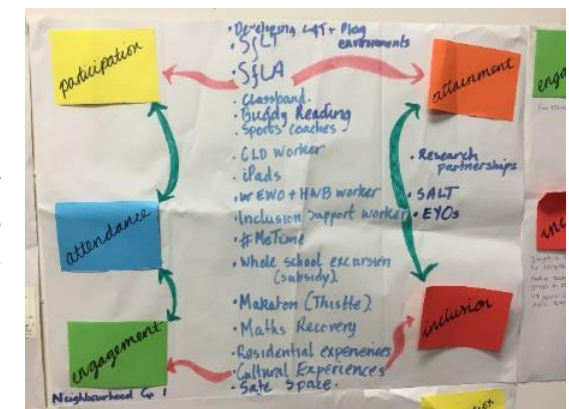 participation
attendance
engagement
Neighbourhood Gp 1
• Developing L+T + Play
environments
• SfLT
• SfLA
• Classband.
• Buddy Reading
• Sports coaches
• CLD Worker
• iPads
• EWO + HWB worker
• Inclusion Support worker
• #MeTime
• Whole school excursion
(subsidy)
• Makaton (Thistle)
• Maths Recovery
• Residential experiences
• Cultural Experiences
• Safe Space.
attainment
• Research
partnerships
• SALT
• EYOs
inclusion
enga
inc